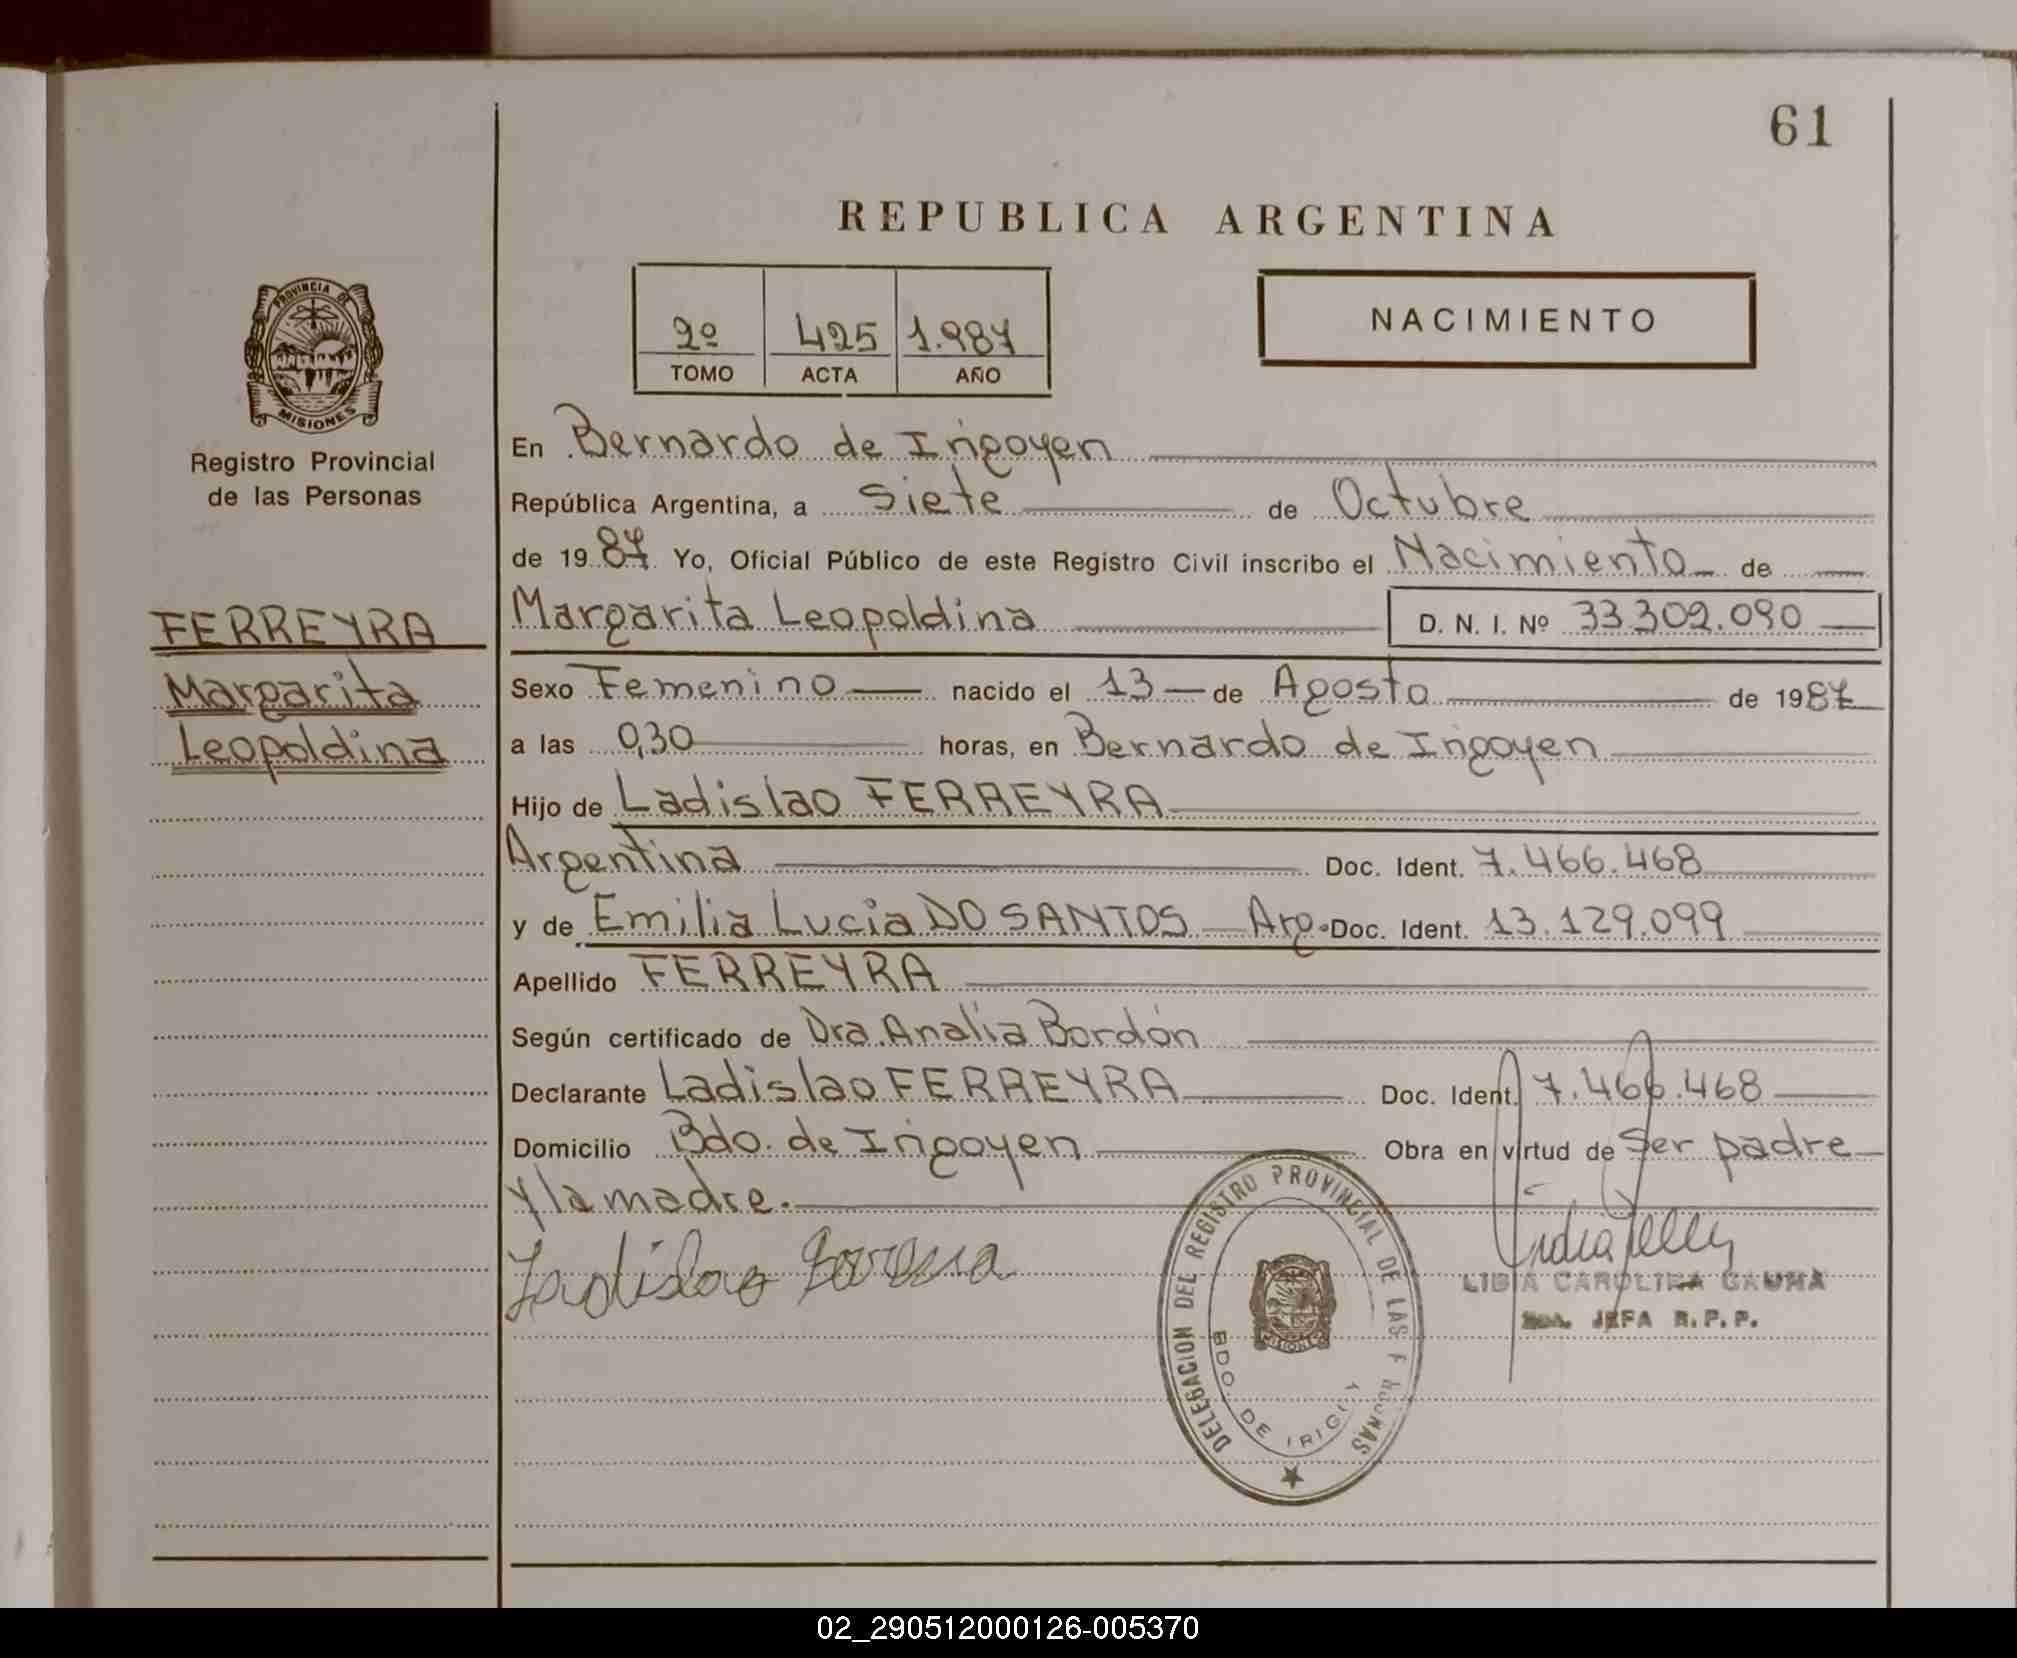 61
REPUBLICA ARGENTINA
PROVINCIA DE
MISIONES
Registro Provincial
de las Personas
FERREYRA
Margarita
Leopoldina
2º 425 1.987
TOMO ACTA AÑO
NACIMIENTO
En Bernardo de Irigoyen
República Argentina, a siete de Octubre
de 1987 Yo, Oficial Público de este Registro Civil inscribo el Nacimiento de
Margarita Leopoldina D. N. I. Nº 33.302.090
Sexo Femenino nacido el 13 de Agosto de 1987
a las 0,30 horas, en Bernardo de Irigoyen
Hijo de Ladislao FERREYRA
Argentina Doc. Ident. 7.466.468
y de Emilia Lucia DO SANTOS Arg. Doc. Ident. 13.129.099
Apellido FERREYRA
Según certificado de Dra. Analía Bordón
Declarante Ladislao FERREYRA Doc. Ident. 7.466.468
Domicilio Bdo. de Irigoyen Obra en virtud de Ser padre
y la madre.
Ladislao
LIBIA CAROLINA GAUNA
JEFA R. P. P.
DELEGACION DEL REGISTRO PROVINCIAL DE LAS
BDO. DE
02_290512000126-005370